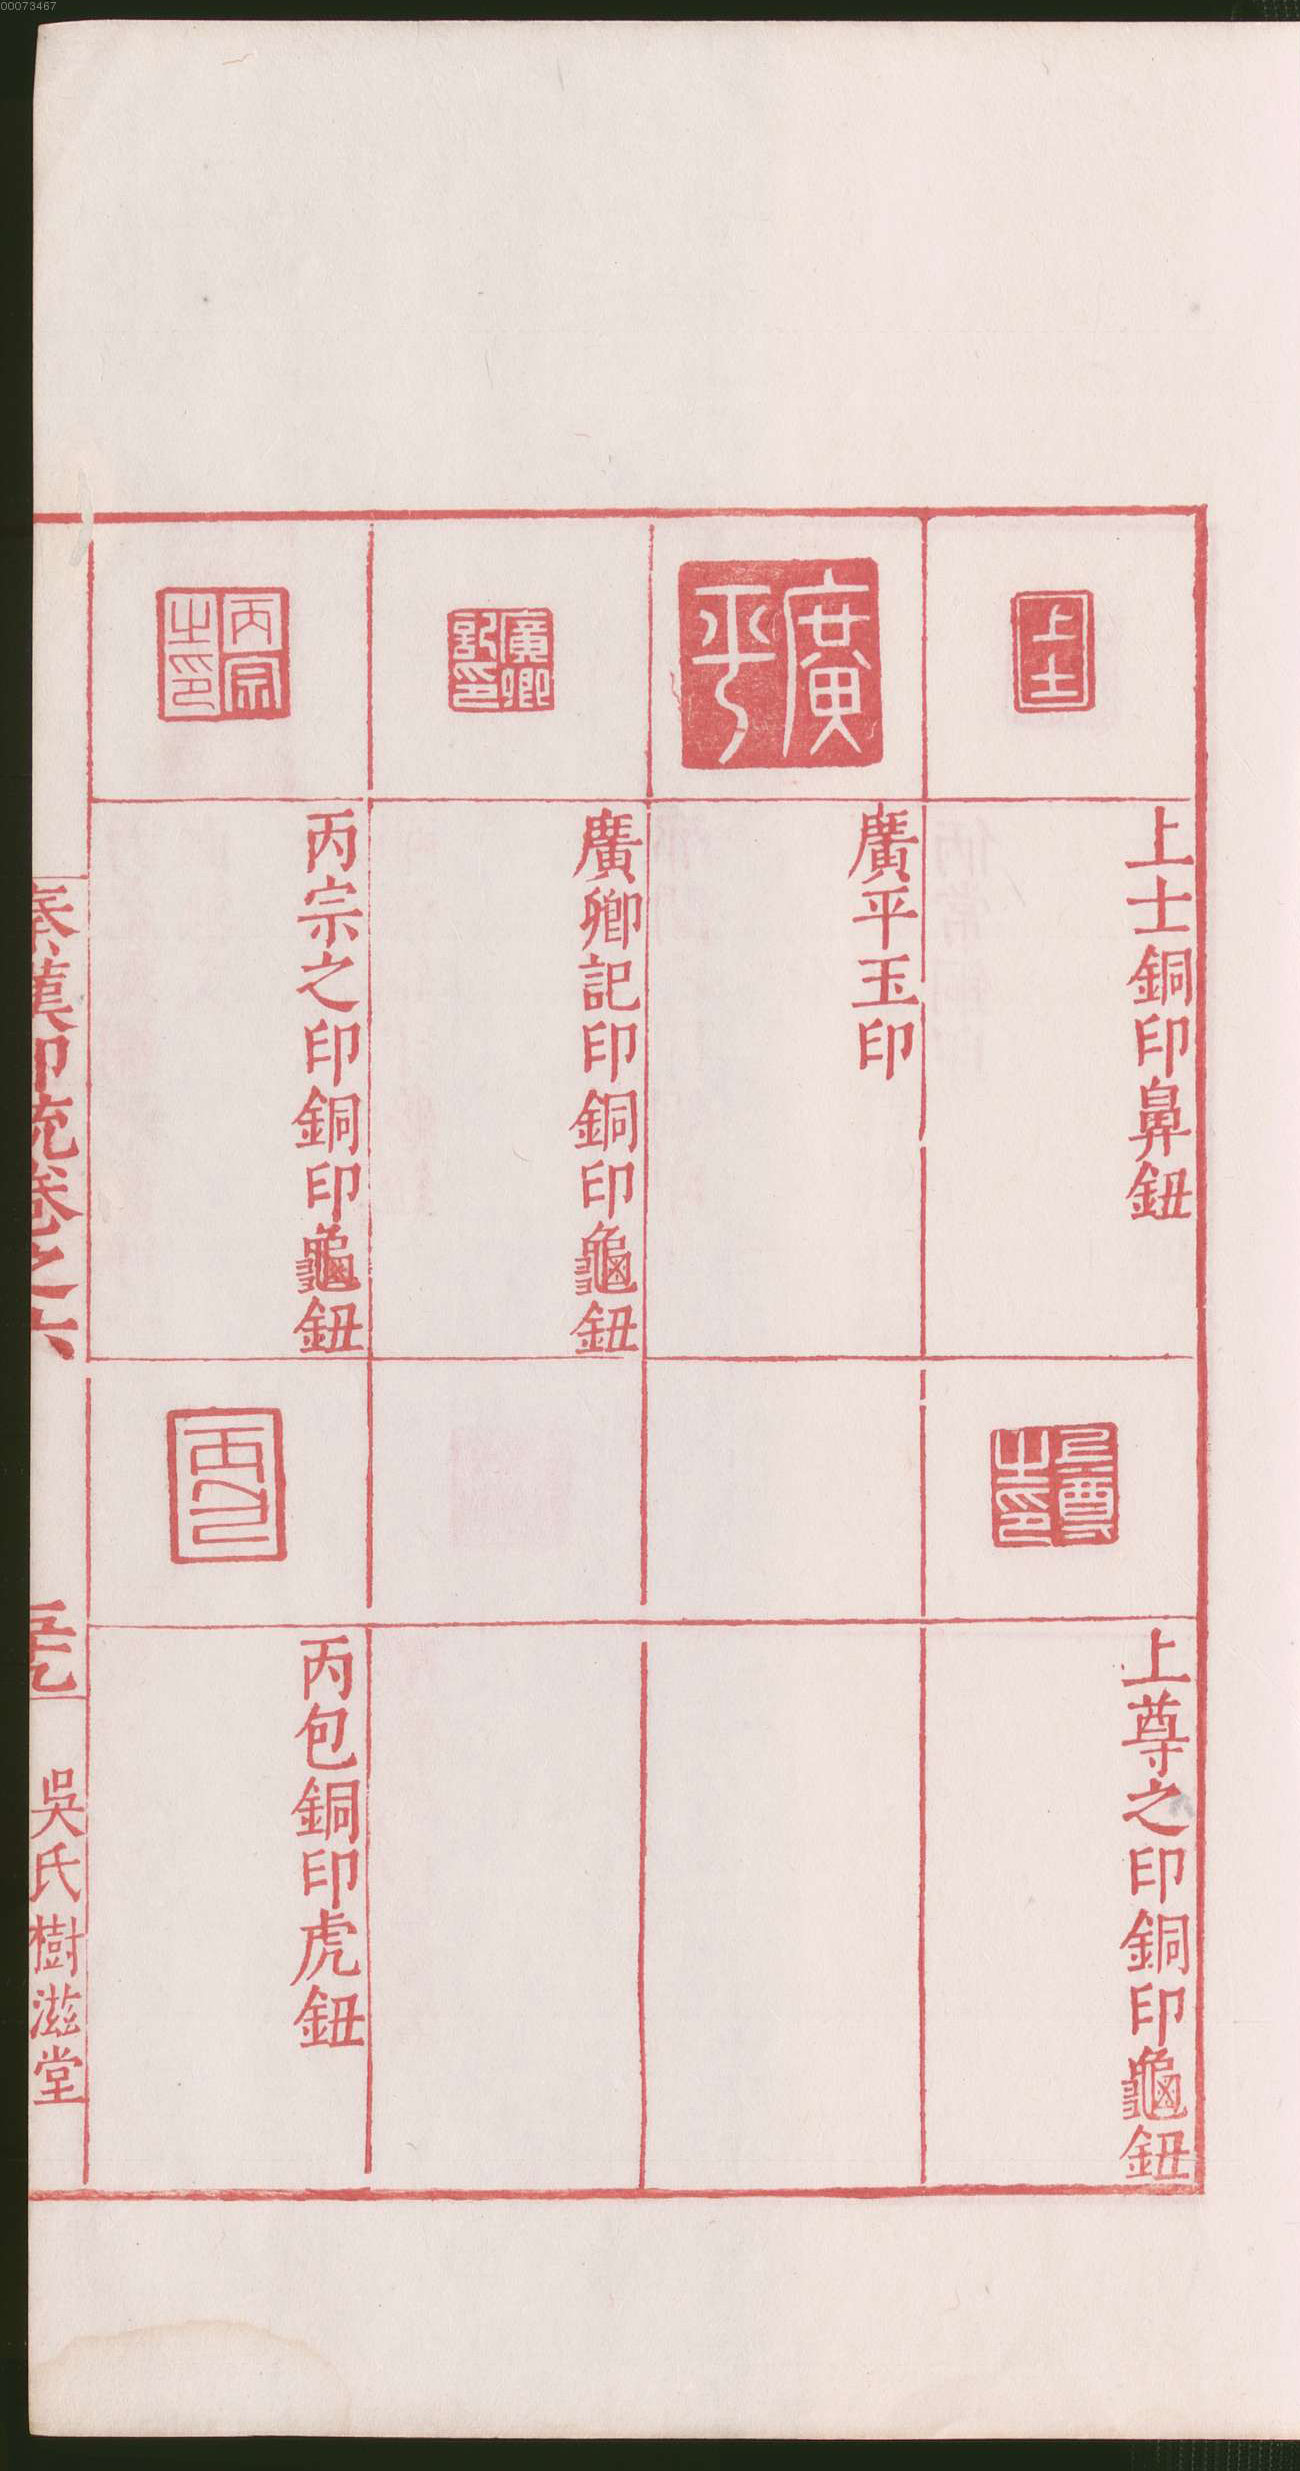 00073467
上士
上士銅印鼻鈕
上尊之印
上尊之印銅印龜鈕
廣平
廣平玉印
廣卿記印
廣卿記印銅印龜鈕
丙宗之印
丙宗之印銅印龜鈕
丙包
丙包銅印虎鈕
秦漢印統卷之六
吳氏樹滋堂